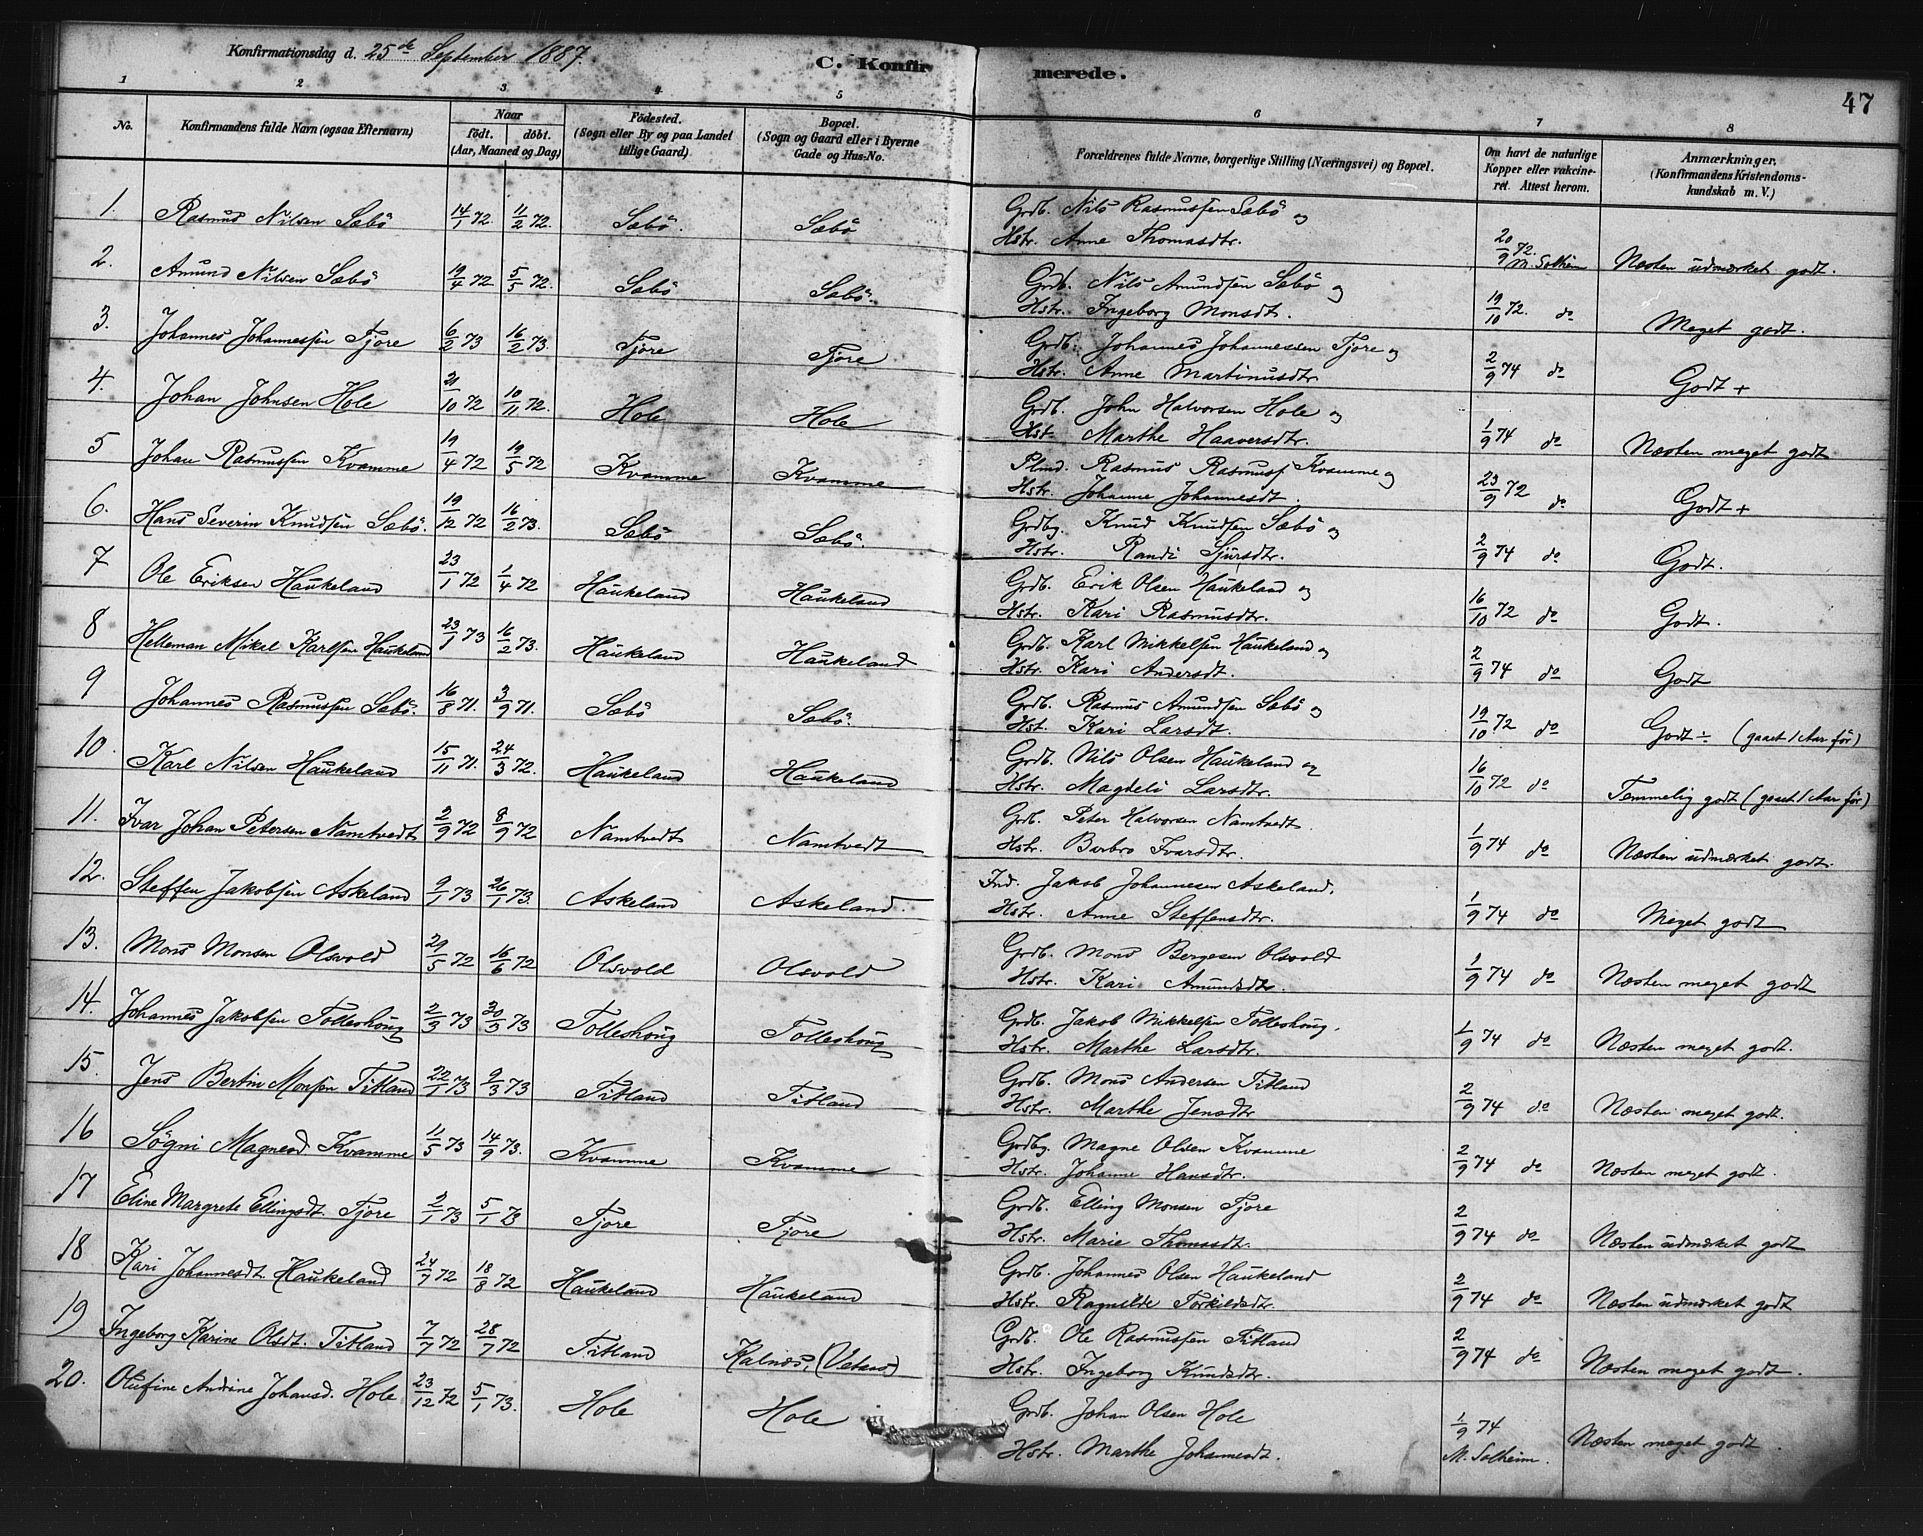 Konfirmationsdag d. 25de September 1887.
C. Konfirmerede.
47
1 2 3 4 5 6 7 8
No.
Konfirmandens fulde Navn (ogsaa Efternavn)
Naar
födt. döbt.
(Aar, Maaned og Dag)
Födested.
(Sogn eller By og paa Landet
tillige Gaard)
Bopæl.
(Sogn og Gaard eller i Byerne
Gade og Hus-No.
Forældrenes fulde Navne, borgerlige Stilling (Næringsvei) og Bopæl.
Om havt de naturlige
Kopper eller vakcine-
ret. Attest herom.
Anmærkninger.
(Konfirmandens Kristendoms-
kundskab m. V.)
1. Rasmus Nilsen Sæbö 14/1 72 11/2 72. Sæbö. Sæbö Grdb. Nils Rasmussen Sæbö og
Hstr. Anne Thomasdtr. 20/9 72. M. Solheim Næsten udmærket godt.
2. Amund Nilsen Sæbö 19/4 72 5/5 72. Sæbö Sæbö. Grdb. Nils Amundsen Sæbö og
Hstr. Ingeborg Monsdt. 19/10 72. do Meget godt.
3. Johannes Johannessen Tjore 6/2 73 16/2 73. Tjore Tjore Grdb. Johannes Johannessen Tjore og
Hstr. Anne Martinusdtr 2/9 74 do Godt +
4. Johan Johnsen Hole 21/10 72 10/11 72. Hole Hole Grdb. John Halvorsen Hole og
Hst. Marthe Haaversdtr. 1/9 74 do Næsten meget godt
5 Johan Rasmussen Kvamme 19/4 72 19/5 72 Kvamme Kvamme Plmd. Rasmus Rasmuss Kvamme og
Hstr. Johanne Johannesdt. 23/9 72 do Godt +
6. Hans Severin Knudsen Sæbö. 19/12 72 16/2 73. Sæbö Sæbö. Grdbg. Knud Knudsen Sæbö og
Hstr. Randi Sjursdtr. 2/9 74 do Godt.
7 Ole Eriksen Haukeland 23/1 72 1/4 72 Haukeland Haukeland Grdb. Erik Olsen Haukeland og
Hstr. Kari Rasmusdtr. 16/10 72 do Godt.
8 Helleman Mikal Karlsen Haukeland 23/1 73 16/2 73. Haukeland Haukeland Grdb. Karl Mikkelsen Haukeland og
Hstr. Kari Andersdt. 2/9 74 do Godt
9 Johannes Rasmussen Sæbö. 16/8 71. 3/9 71. Sæbö Sæbö. Grdb. Rasmus Amundsen Sæbö og
Hst. Kari Larsdt. 19/10 72 do Godt ÷ (gaaet 1 Aar för)
10. Karl Nilsen Haukeland 15/11 71. 24/3 72. Haukeland Haukeland Grdb. Nils Olsen Haukeland og
Hstr. Magdeli Larsdtr. 16/10 72 do Temmelig godt (gaaet 1 Aar för)
11. Ivar Johan Petersen Namtvedt 2/9 72 8/9 72 Namtvedt Namtvedt Grdb. Peter Halvorsen Namtvedt
Hstr. Barbro Ivarsdtr. 1/9 74 do Næsten udmærket godt.
12. Steffen Jakobsen Askeland 9/1 73 26/1 73. Askeland Askeland. Ind. Jakob Johannesen Askeland.
Hstr. Anne Steffensdtr. 1/9 74 do Meget godt
13. Mons Monsen Olsvold 29/5 72 16/6 72 Olsvold Olsvold Grdb. Mons Bergesen Olsvold
Hstr. Kari Amundsdtr. 1/9 74 do Næsten meget godt
14. Johannes Jakobsen Tolleshöug 2/3 73 30/3 73 Tolleshöug Tolleshöug Grdb. Jakob Mikkelsen Tolleshöug.
Hstr. Marthe Larsdtr. 1/9 74 do Næsten meget godt.
15. Jens Bertin Monsen Titland 22/1 73 9/3 73 Titland Titland Grdb. Mons Andersen Titland
Hstr. Marthe Jensdtr 2/9 74 do Næsten meget godt.
16 Sögni Magnesd. Kvamme 11/5 73 14/9 73. Kvamme Kvamme Grdbg. Magne Olsen Kvamme
Hstr. Johanne Hansdtr. 2/9 74 do Næsten meget godt.
17 Eline Margrete Ellingsdt. Tjore 2/1 73 5/1 73 Tjore Tjore Grdb. Elling Monsen Tjore
Hstr. Marie Thomasdt. 2/9 74 do Næsten udmærket godt
18 Kari Johannesdt. Haukeland 24/7 72 18/8 72 Haukeland Haukeland Grdb. Johannes Olsen Haukeland
Hstr. Ragnilde Torkildsdtr. 2/9 74 do Næsten udmærket godt
19 Ingeborg Karine Olsdt. Titland 7/7 72 28/7 72 Titland Kalnæs, Grdb. Ole Rasmussen Titland
Hstr. Ingeborg Knudsdtr. 2/9 74 do Næsten meget godt.
20. Olufine Andrine Johansd. Hole 23/12 72 5/1 73. Hole Hole Grdb. Johan Olsen Hole
Hstr. Marthe Johannesdt. 1/9 74 M. Solheim. Næsten meget godt.